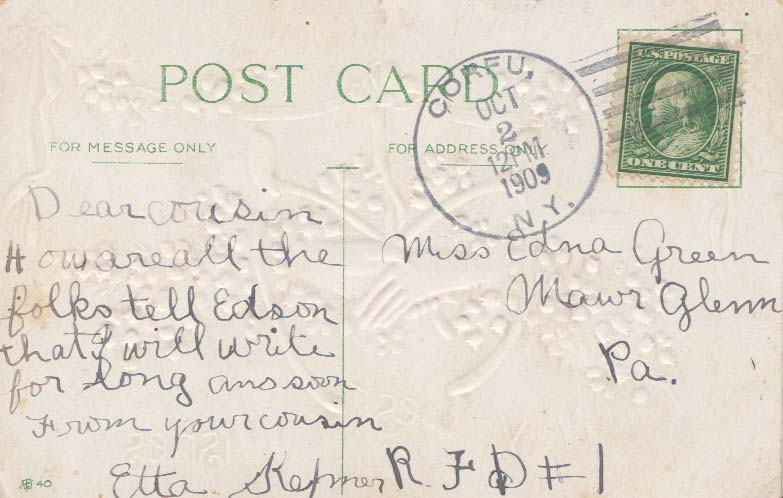 POST CARD
FOR MESSAGE ONLY
FOR ADDRESS ONLY
CORFU,
OCT
2
12PM
1909
N.Y.
U.S. POSTAGE
ONE CENT
Dear cousin
How are all the
folks tell Edson
that I will write
for long ans soon
From your cousin
Etta
Miss Edna Green
Mawr Glenn
Pa.
R.F.D #1
40